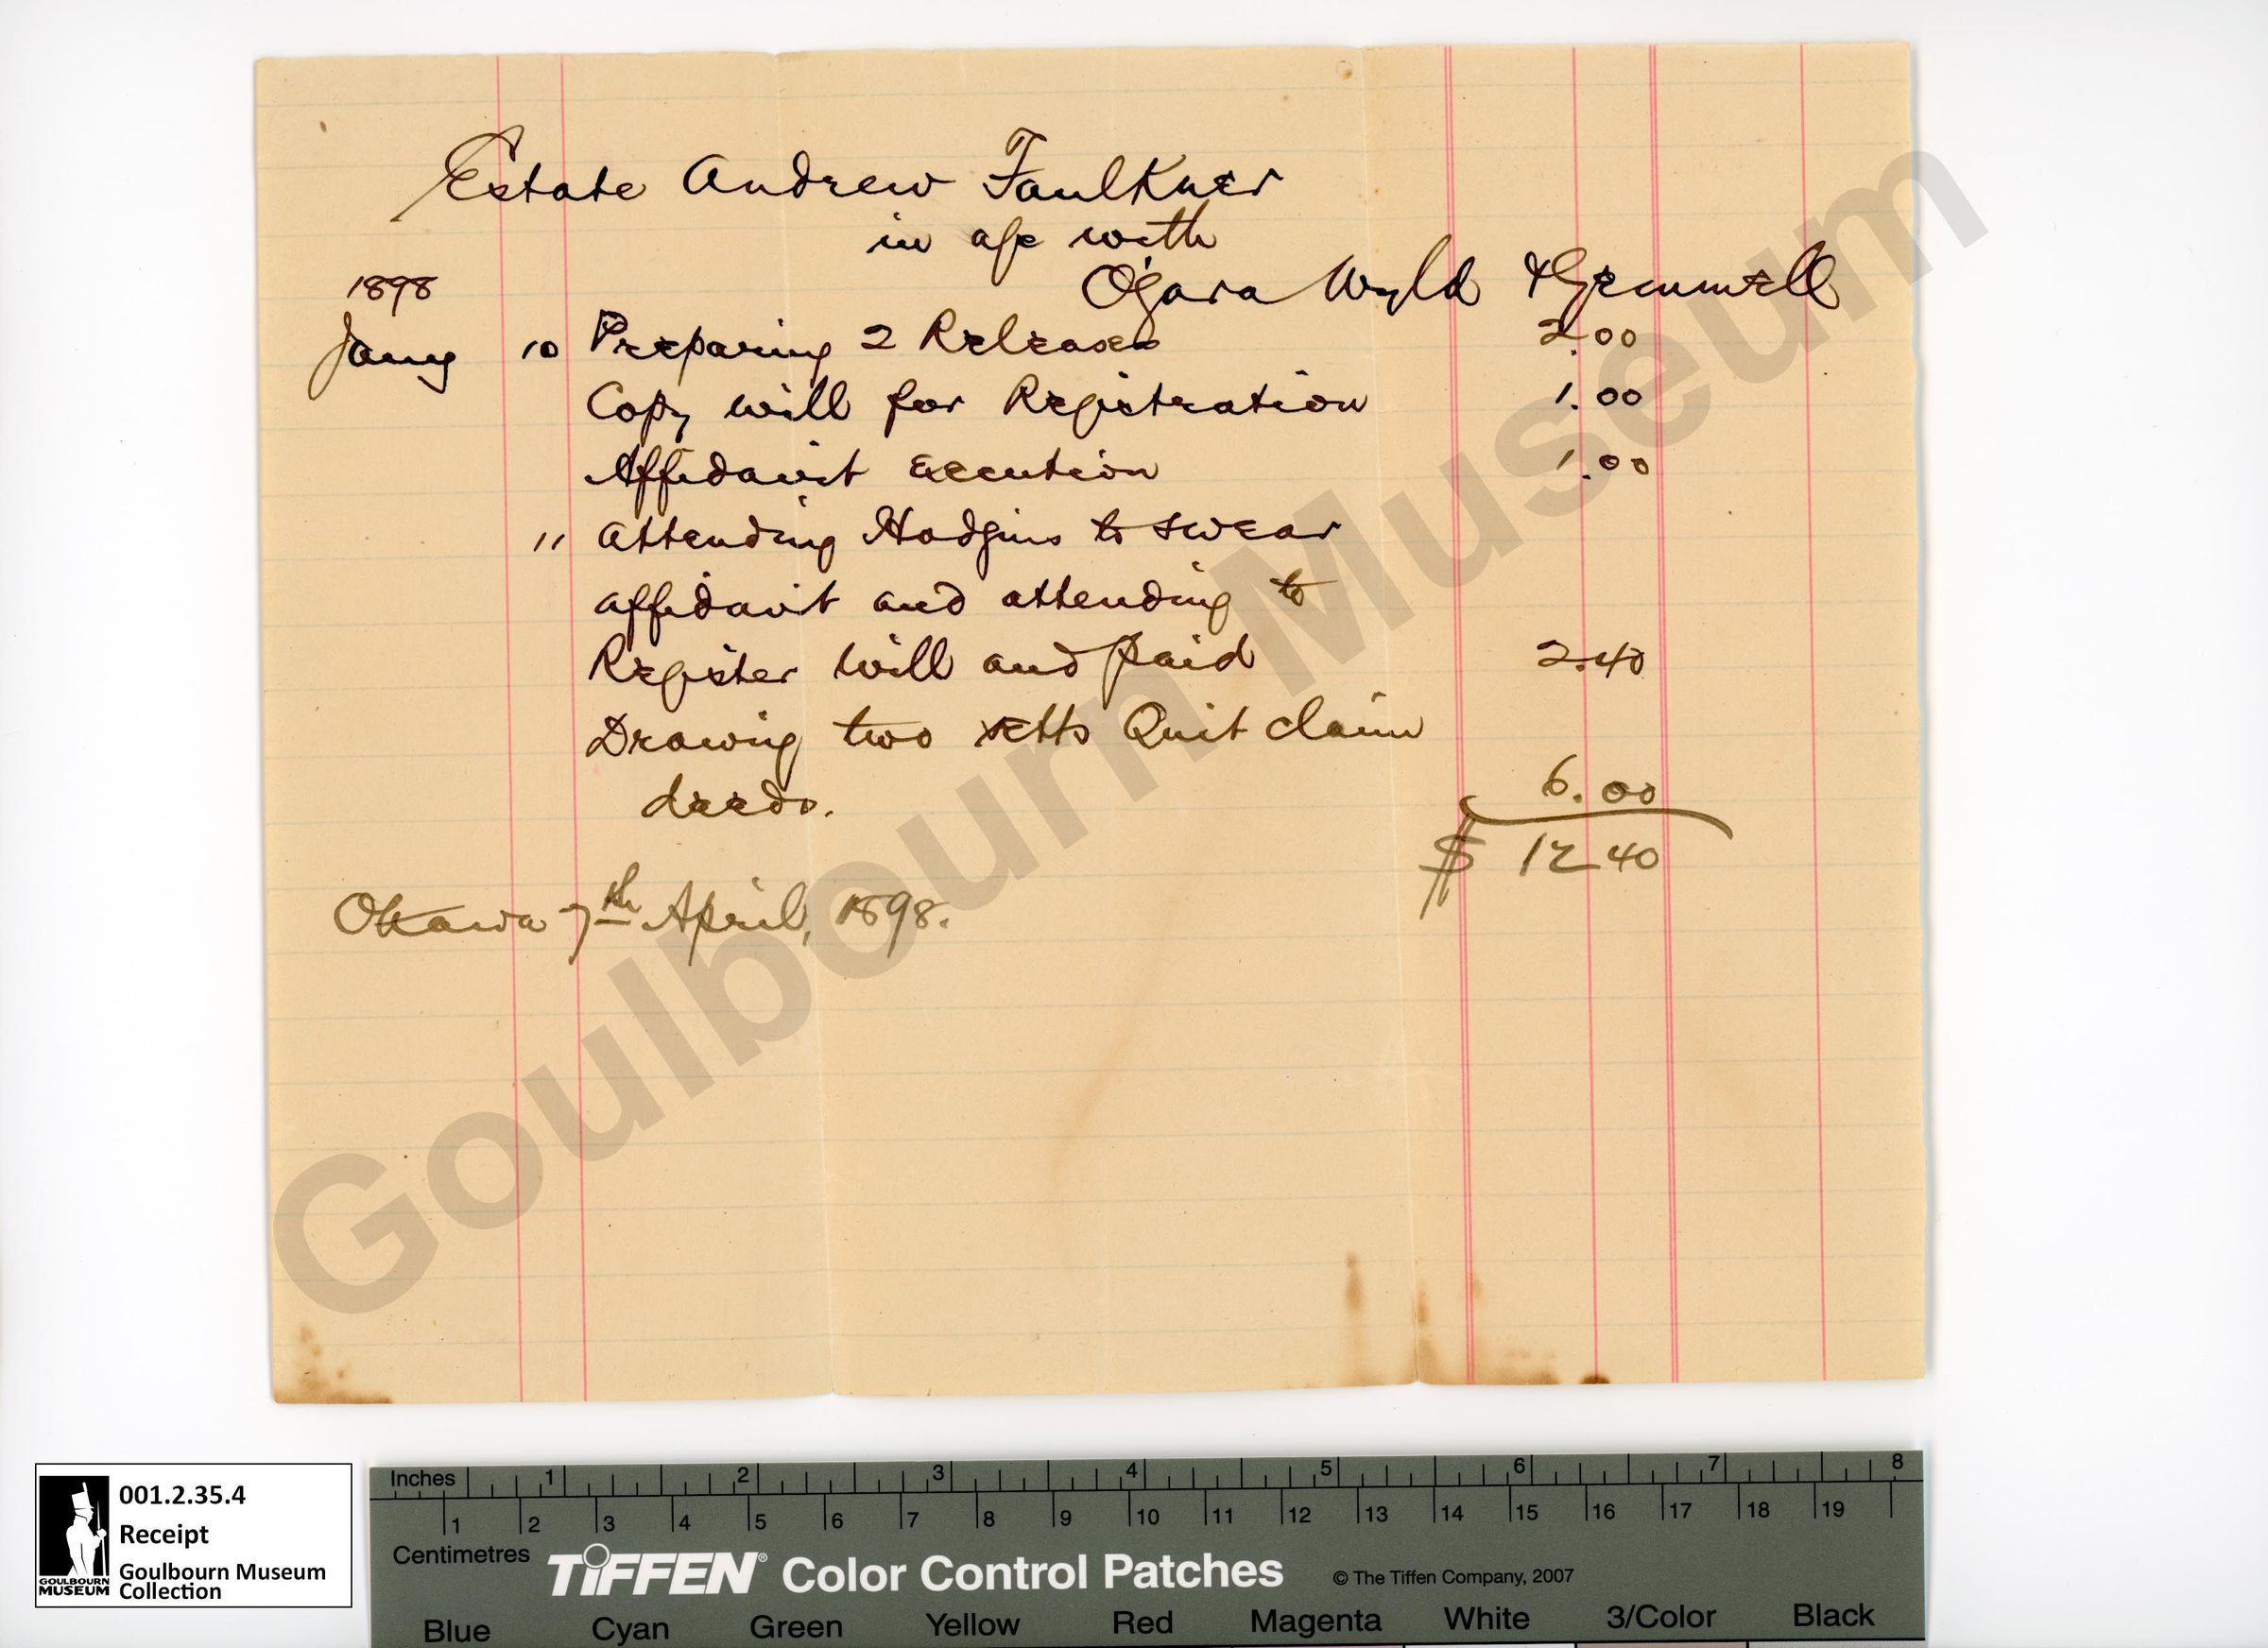 Estate Andrew Faulkner
in a/c with
O'Gara Wyld & Gemmell
1898
Jany 10 Preparing 2 Releases 2.00
Copy will for Registration 1.00
Affidavit Execution 1.00
" Attending Hodgins to swear
affidavit and attending to
Register Will and paid 2.40
Drawing two setts Quit claim
deeds. 6.00
$ 12 40
Ottawa 7th April, 1898.
Goulbourn Museum
001.2.35.4
Receipt
Goulbourn Museum
Collection
GOULBOURN
MUSEUM
Inches 1 2 3 4 5 6 7 8
1 2 3 4 5 6 7 8 9 10 11 12 13 14 15 16 17 18 19
Centimetres
TIFFEN® Color Control Patches © The Tiffen Company, 2007
Blue Cyan Green Yellow Red Magenta White 3/Color Black